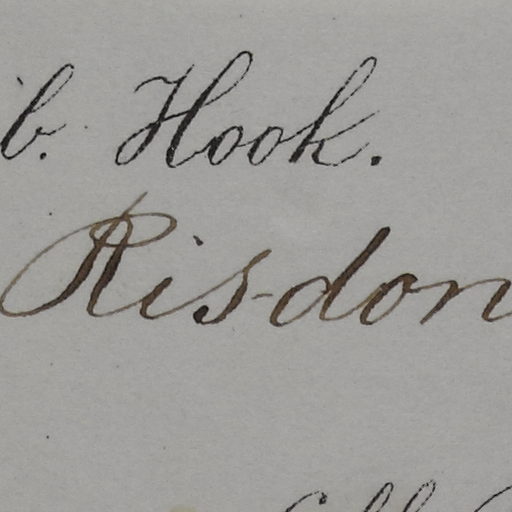 b. Hook.
Risdon